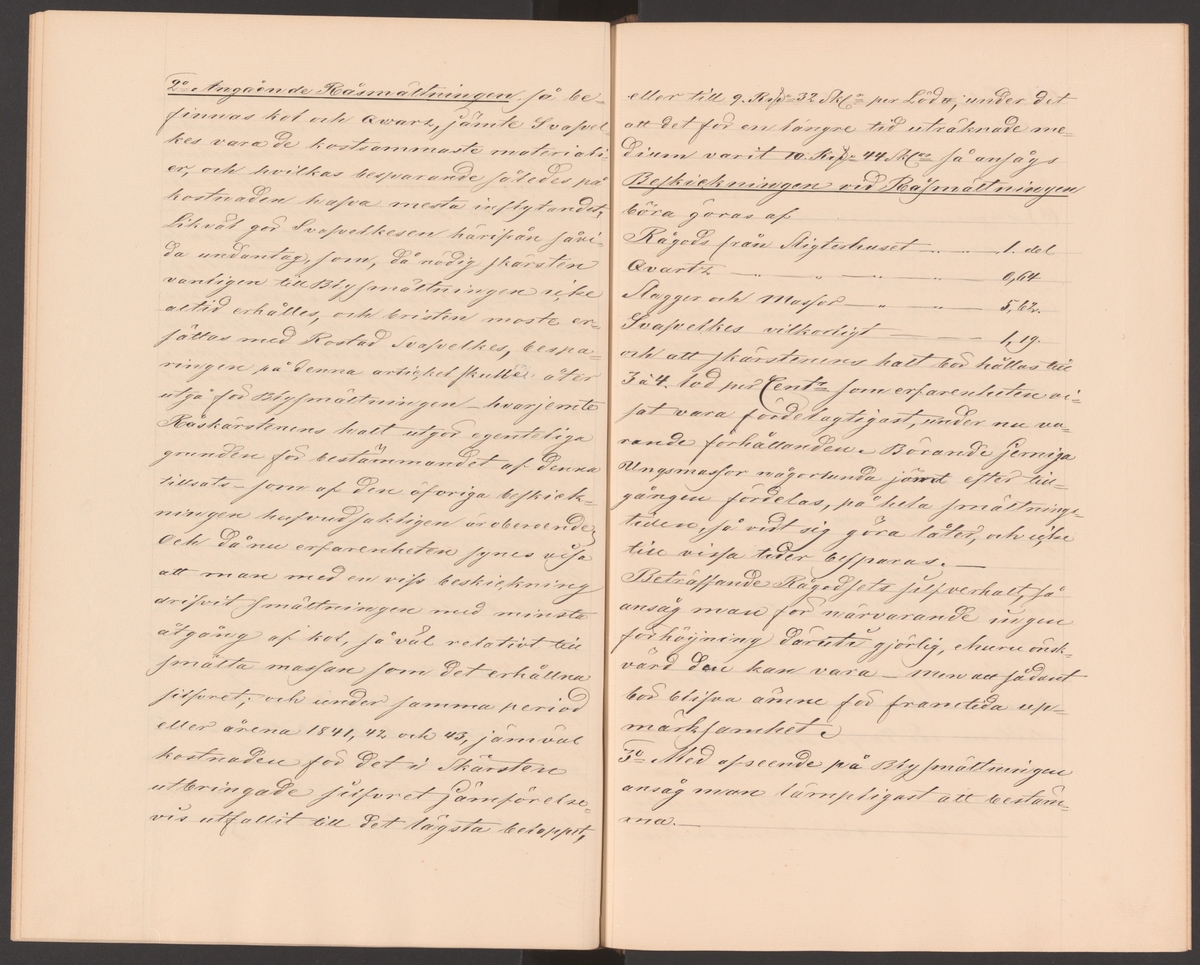 2o. Angående Råsmältningen, så be-
finnas kol och Qvarz, jämte Svafvel-
kes vara de kostsammaste materiali-
er, och hvilkas besparande således på
kostnaden hafva mesta inflytandet,
Likväl gör Svafvelkesen härifrån såvi-
da undantag, som, då nödig skärsten
vanligen till Blysmältningen icke
altid erhålles, och bristen moste er-
sättas med Rostad Svafvelkes, bespa-
ringen på denna artickel skulle åter
utgå för Blysmältningen – hvarjemte
Råskärstenens halt utgör egentliga
grunden för bestämmandet af denna
tillsats – som af den öfriga beskick-
ningen hufvudsakligen är oberoende,
Och då nu erfarenheten synes visa
att man med en viss beskickning
drifvit smältningen med minsta
åtgång af kol, så väl relativt till
smälta massan som det erhållna
silfret; och under samma period
eller årena 1841, 42 och 43, jämväl
kostnaden för det i Skärsten
utbringade silfret jämförelse-
vis utfallit till det lägsta beloppet,
eller till 9. Rdr 32 Sk per Löd ℔, under det
att det för en längre tid uträknade me-
dium varit 10. Rdr 44 Sk så ansågs
Beskickningen vid Råsmältningen
böra göras af
Rågods från Stigterhuset — „ — 1. del
Qvartz — „ — „ — „ — 0,64
Slagger och Massor — „ — 5,62.
Svafvelkes vilkorligt — 1,19.
och att skärstenens halt bör hållas till
3 à 4. lod per Centr som erfarenheten vi-
sat vara fördelagtigast, under nu va-
rande förhållanden. Börande jerniga
Ungsmassor någorlunda jämt efter till-
gången fördelas, på hela smältnings-
tiden, så vidt sig göra låter, och icke
till vissa tider besparas. —
Beträffande Rågodsets silfverhalt, så
ansåg man för närvarande ingen
förhögning däruti gjörlig, ehuru önsk-
värd den kan vara – men att sådant
bör blifva ämne för framtida up-
märksamhet.
3o Med afseende på Blysmältningen
ansåg man lämpligast att bestäm-
ma. —